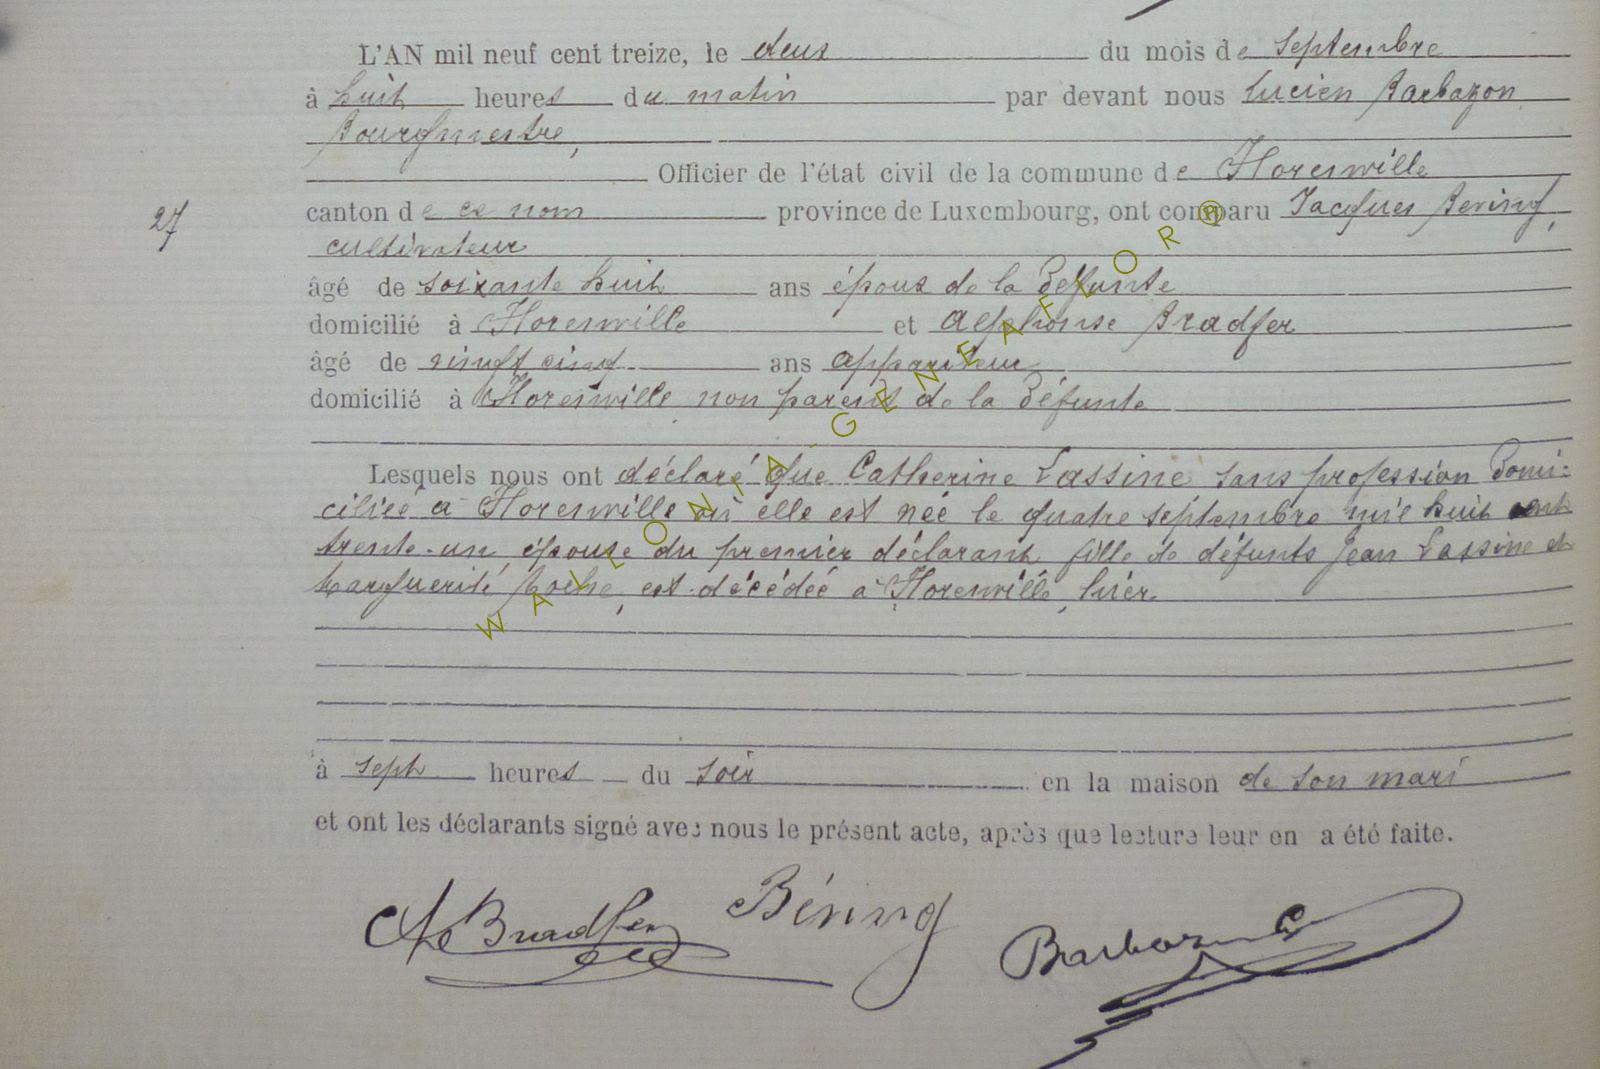 L'AN mil neuf cent treize, le deux du mois de septembre
à huit heures du matin par devant nous Lucien Barbazon
Bourgmestre,
Officier de l'état civil de la commune de Florenville
27 canton de ce nom province de Luxembourg, ont comparu Jacques Bering,
cultivateur
âgé de soixante huit ans époux de la défunte
domicilié à Florenville et Alphonse Bradfer
âgé de vingt cinq ans appariteur
domicilié à Florenville non parent de la défunte
Lesquels nous ont déclaré que Catherine Lassine sans profession domi-
ciliée à Florenville où elle est née le quatre septembre mil huit cent
trente-un, épouse du premier déclarant, fille de défunts Jean Lassine et
Marguerite est décédée à Florenville, hier
à sept heures du soir en la maison de son mari
et ont les déclarants signé avec nous le présent acte, après que lecture leur en a été faite.
Al Bradfer Béring Barbazon
WALLONIA-GENEAFLOR®